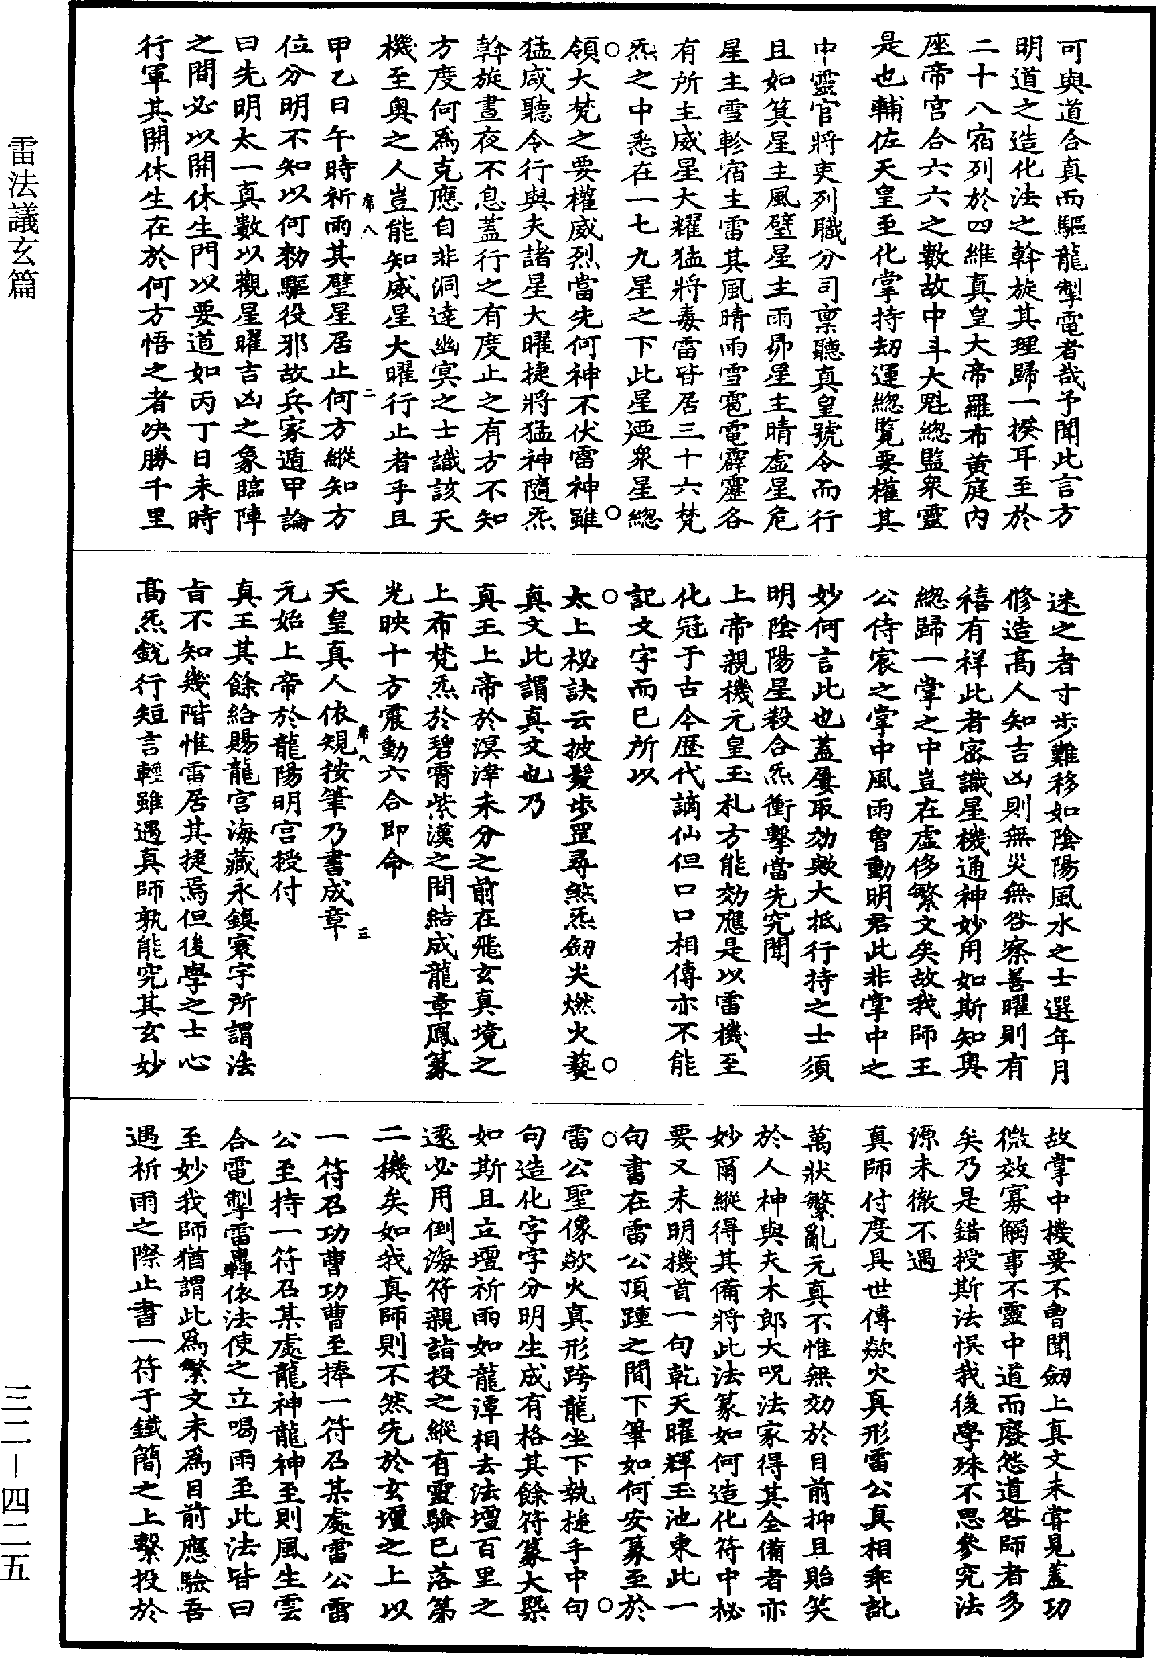 可與道合真而驅龍掣電者哉予聞此言方
明道之造化法之斡旋其理歸一揆耳至於
二十八宿列於四維真皇大帝羅布黃庭內
座帝宮合六六之數故中斗大魁總監衆靈
是也輔佐天皇至化掌持劫運總覽要權其
中靈官將吏列職分司禀聽真皇號令而行
且如箕星主風壁星主雨昴星主晴虛星危
星主雪軫宿主雷其風晴雨雪雹電霹靂各
有所主威星大耀猛將毒雷皆居三十六梵
炁之中悉在一七九星之下此星迺衆星總
領大梵之要權威烈當先何神不伏雷神雖
猛咸聽令行與夫諸星大曜捷將猛神隨炁
斡旋晝夜不息蓋行之有度止之有方不知
方度何爲克應自非洞達幽冥之士識該天
機至奥之人豈能知威星大曜行止者乎且
席八
二
甲乙日午時祈雨其壁星居止何方縱知方
位分明不知以何勑驅役邪故兵家遁甲論
曰先明太一真數以觀星曜吉凶之象臨陣
之間必以開休生門以要道如丙丁日未時
行軍其開休生在於何方悟之者决勝千里
迷之者寸步難移如陰陽風水之士選年月
修造高人知吉凶則無災無咎察善曜則有
禧有祥此者密識星機通神妙用如斯知輿
總歸一掌之中豈在虛侈繁文矣故我師王
公侍宸之掌中風雨會動明君此非掌中之
妙何言此也蓋屢取効歟大抵行持之士須
明陰陽星殺合炁衝擊當先究聞
上帝親機元皇玉札方能効應是以雷機至
化冠于古今歷代謫仙但口口相傳亦不能
記文字而已所以
太上秘訣云披髮步罡尋煞炁劒尖燃火藝
真文此謂真文也乃
真王上帝於溟涬未分之前在飛玄真境之
上布梵炁於碧霄紫漢之間結成龍章鳳篆
光映十方震動六合即命
席八
三
天皇真人依規按筆乃書成章
元始上帝於龍陽明宮授付
真王其餘給賜龍宮海藏永鎮寰宇所謂法
旨不知幾階惟雷居其捷焉但後學之士心
高炁銳行短言輕雖遇真師孰能究其玄妙
故掌中機要不曾聞劒上真文未嘗見蓋功
微效寡觸事不靈中道而廢怨道咎師者多
矣乃是錯授斯法悞我後學殊不思參究法
源未徹不遇
真師付度具世傳欻火真形雷公真相乖訛
萬狀繁亂元真不惟無効於目前抑且貽笑
於人神與夫木郎大呪法家得其全備者亦
妙爾縱得其備將此法篆如何造化符中秘
要又未明機首一句乾天曜輝玉池東此一
句書在雷公頂踵之間下筆如何安篆至於
雷公聖像欻火真形跨龍坐下執槌手中句
句造化字字分明生成有格其餘符篆大槩
如斯且立壇祈雨如龍潭相去法壇百里之
遠必用倒海符親詣投之縱有靈驗已落第
二機矣如我真師則不然先於玄壇之上以
一符召功曹功曹至捧一符召某處雷公雷
公至持一符召某處龍神龍神至則風生雲
合電掣雷轟依法使之立喝雨至此法皆曰
至妙我師猶謂此爲繁文未爲目前應驗吾
遇祈雨之際止書一符于鐵簡之上繫投於
雷法議玄篇
三二－四二五